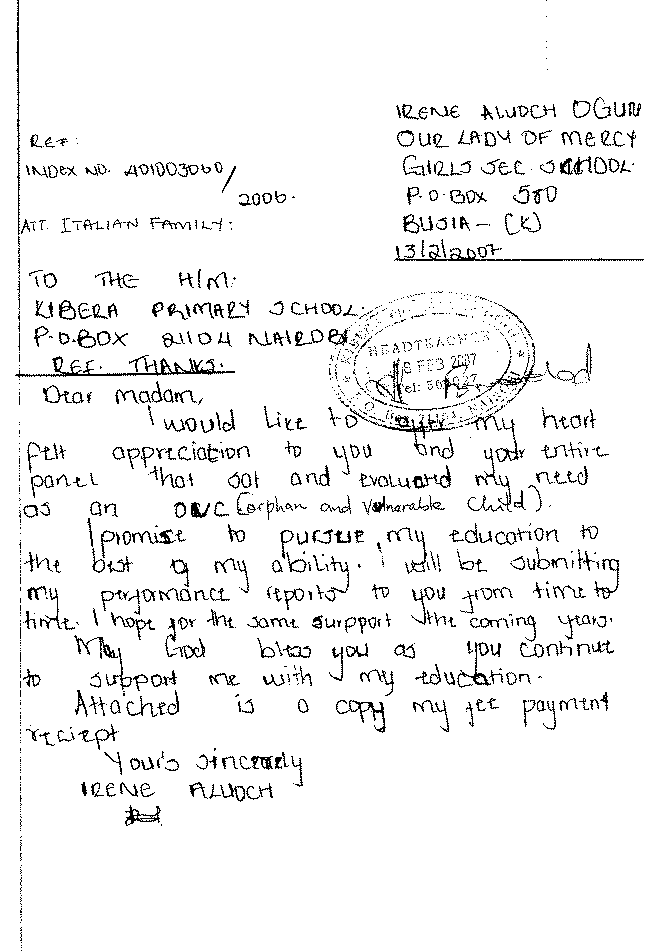 IRENE ALUOCH OGUN
OUR LADY OF MERCY
GIRLS SEC. SCHOOL.
P.O. BOX 580
BUSIA - (K)
13/2/2007
REF:
INDEX NO. 401003060/
2006.
ATT. ITALIAN FAMILY:
TO THE H/M:
KIBERA PRIMARY SCHOOL.
P.O. BOX 21104 NAIROBI
REF. THANKS.
HEADTEACHER
FEB 2007
Tel:
Dear Madam,
I would like to my heart
felt appreciation to you and your entire
panel that sat and evaluated my need
as an OVC (orphan and Vulnerable Child).
I promise to pursue my education to
the best of my ability. I will be submitting
my performance reports to you from time to
time. I hope for the same surpport the coming years.
May God bless you as you continue
to support me with my education.
Attached is a copy my fee payment
reciept
Your's sincerely
IRENE ALUOCH